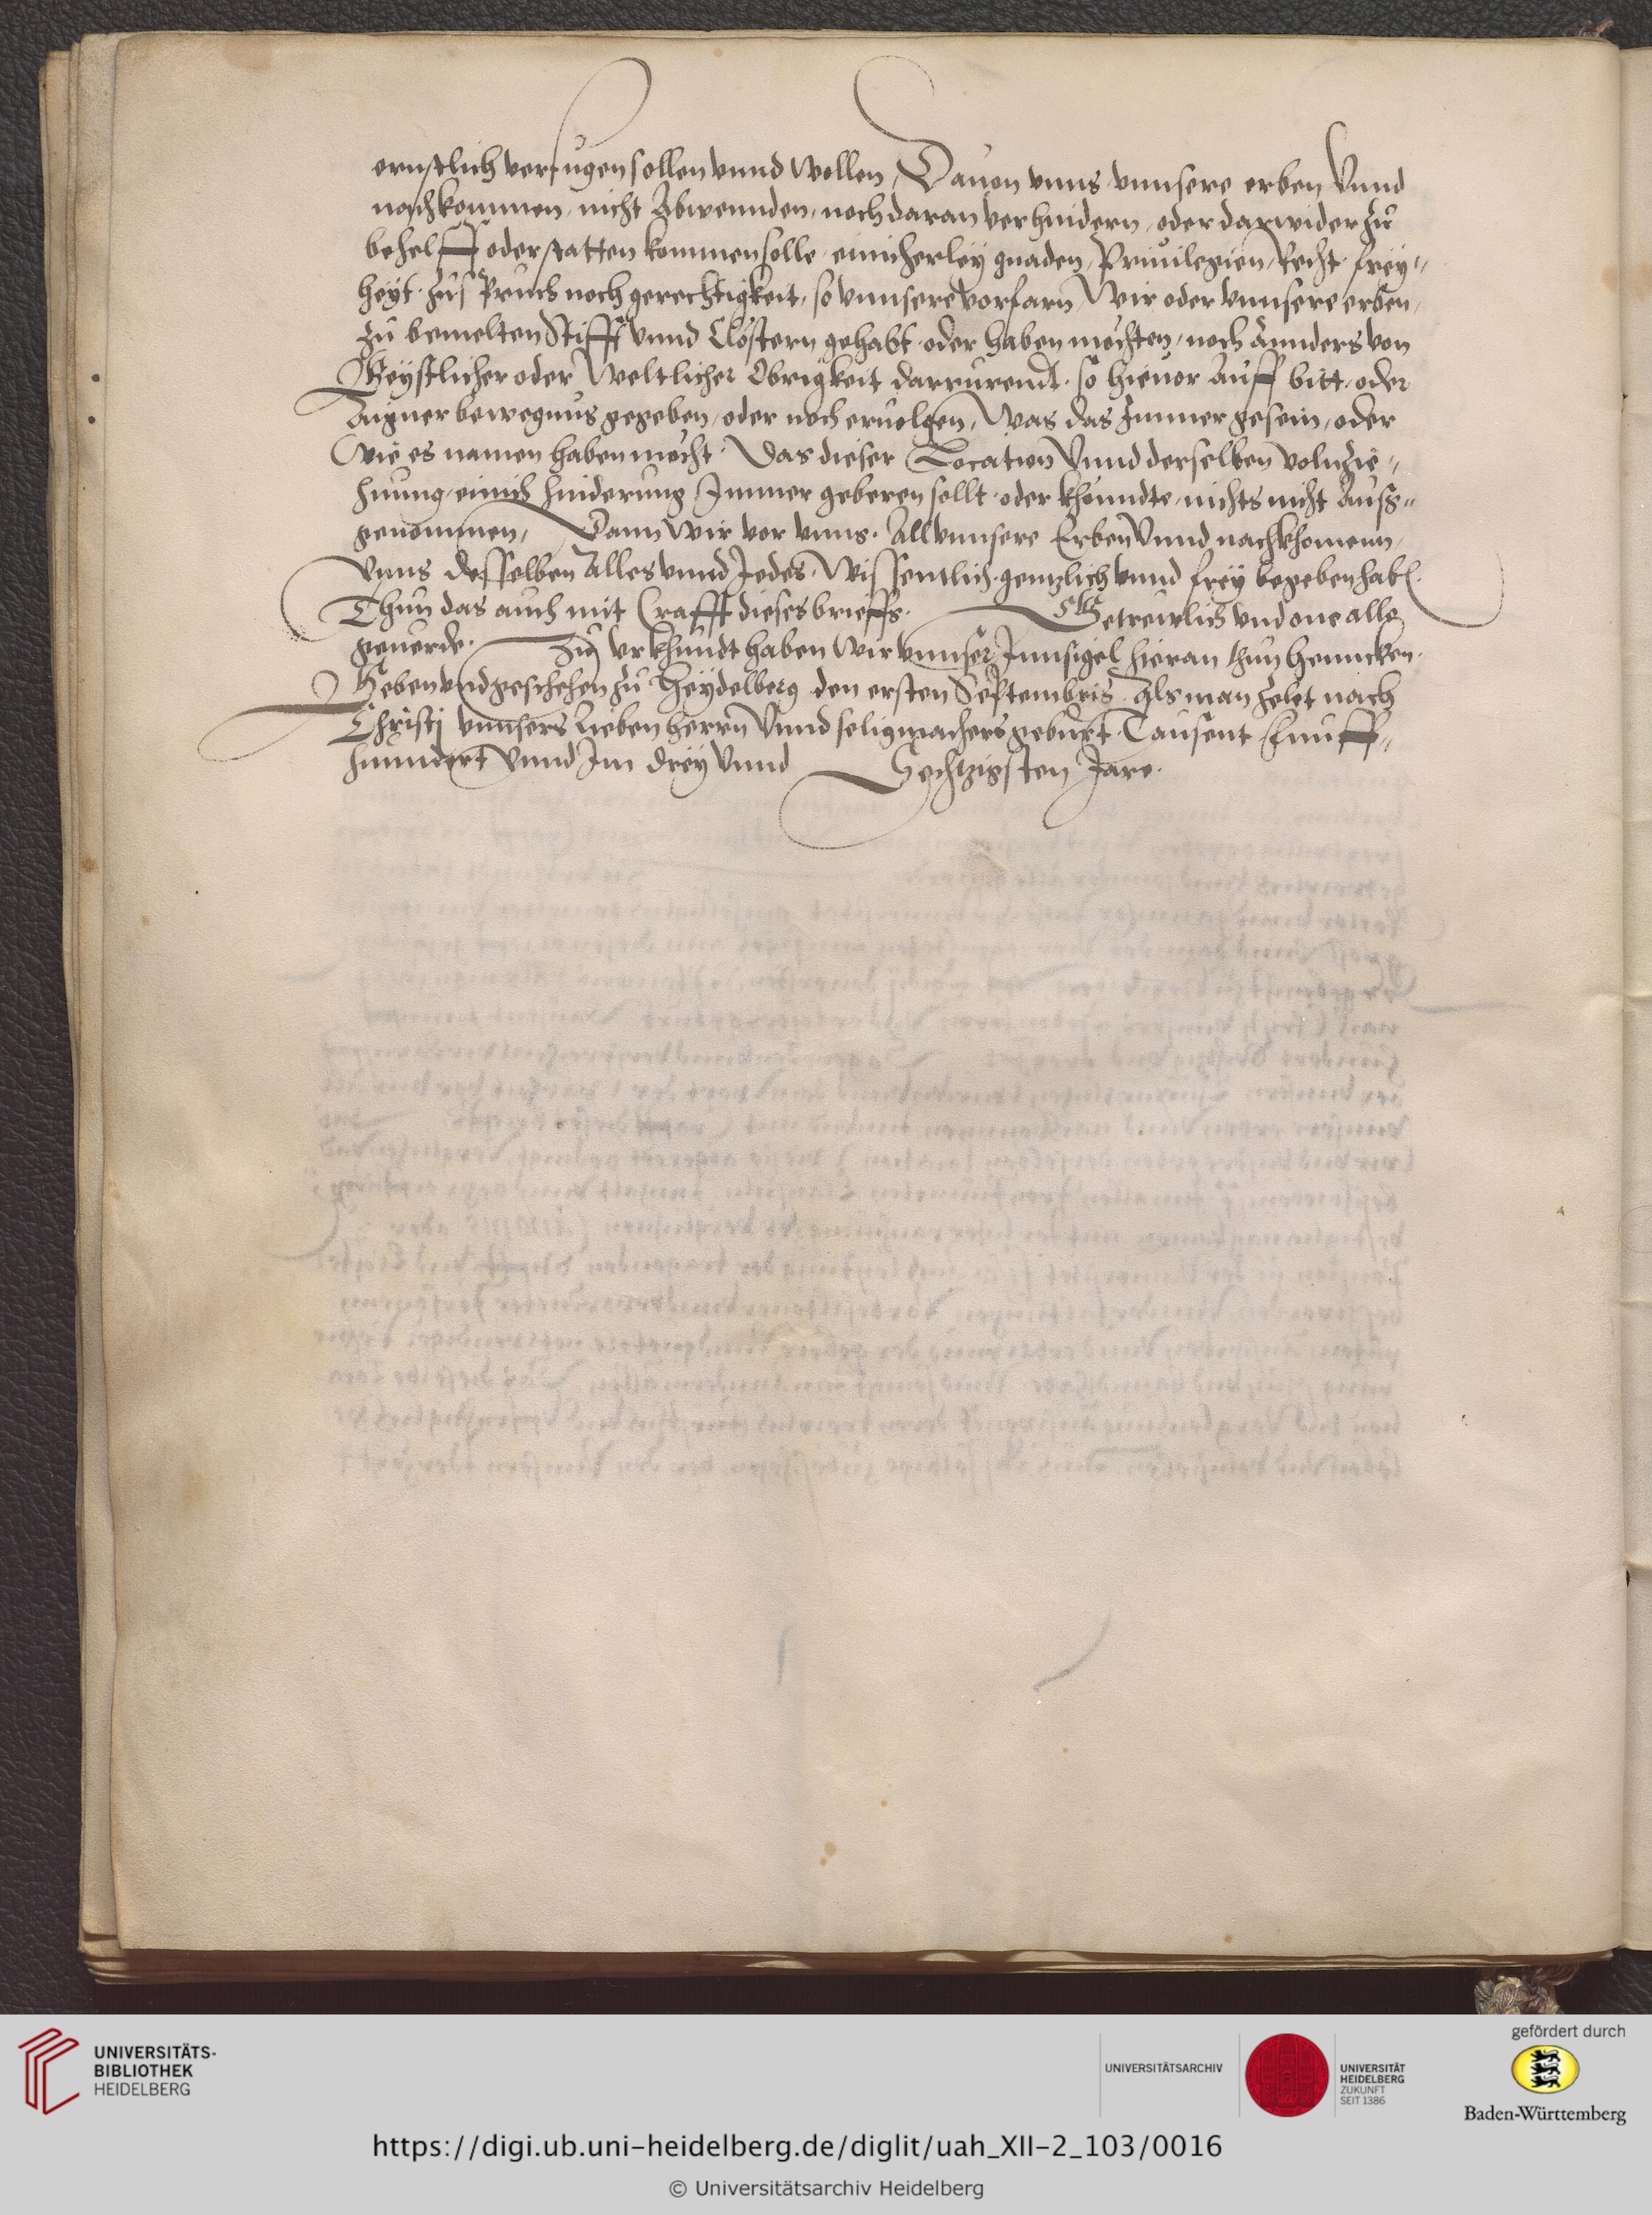 ernstlich verfugen sollen vnnd wollen, Dauon vnns vnnsere erben Vnnd
nachkommen, nicht Abwennden, noch daran verhindern, oder darwider zů
behelff oder statten kommen solle, einicherley gnaden, Priuilegien, Recht, frey„
heyt, Zůspruch noch gerechtigkeit, so vnnsere vorfarn Wir oder vnnsere erben,
zů bemelten Stifft vnnd Clöstern gehabt, oder haben möchten, noch annders von
Geystlicher oder Weltlicher Obrigkeit darrurendt, so hieuor Auff bitt, oder
Aigner bewegnus gegeben, oder noch eruolgen, Was das Immer gesein, oder
Wie es namen haben möcht, Das dieser Location Vnnd derselben volnzie„
hnung, einich hinderung Immer geberen sollt, oder khönndte, nichts nicht Auß„
genommen, Dann Wir vor vnns, All vnnsere Erben Vnnd nachkhomenn,
Vnns desselben Alles vnnd Jedes, Wissentlich, gentzlich vnnd frey begeben hab
Thun das auch mit Crafft dieses brieffs. Getreulich vnd one alle
geuerde. Zů vrkhundt haben Wir vnnser Innsigel hieran thun henncken.
Geben vnd geschehen zů Heydelberg den ersten Septembris Als man zelet nach
Christj vnnsers Lieben herrn Vnnd seligmachers geburt, Tausent Funff„
hunndert Vnnd Im drey Vnnd Sechtzigsten Jare.
UNIVERSITÄTS-
BIBLIOTHEK
HEIDELBERG
UNIVERSITÄTSARCHIV
UNIVERSITÄT
HEIDELBERG
ZUKUNFT
SEIT 1386
gefördert durch
Baden-Württemberg
https://digi.ub.uni-heidelberg.de/diglit/uah_XII-2_103/0016
© Universitätsarchiv Heidelberg